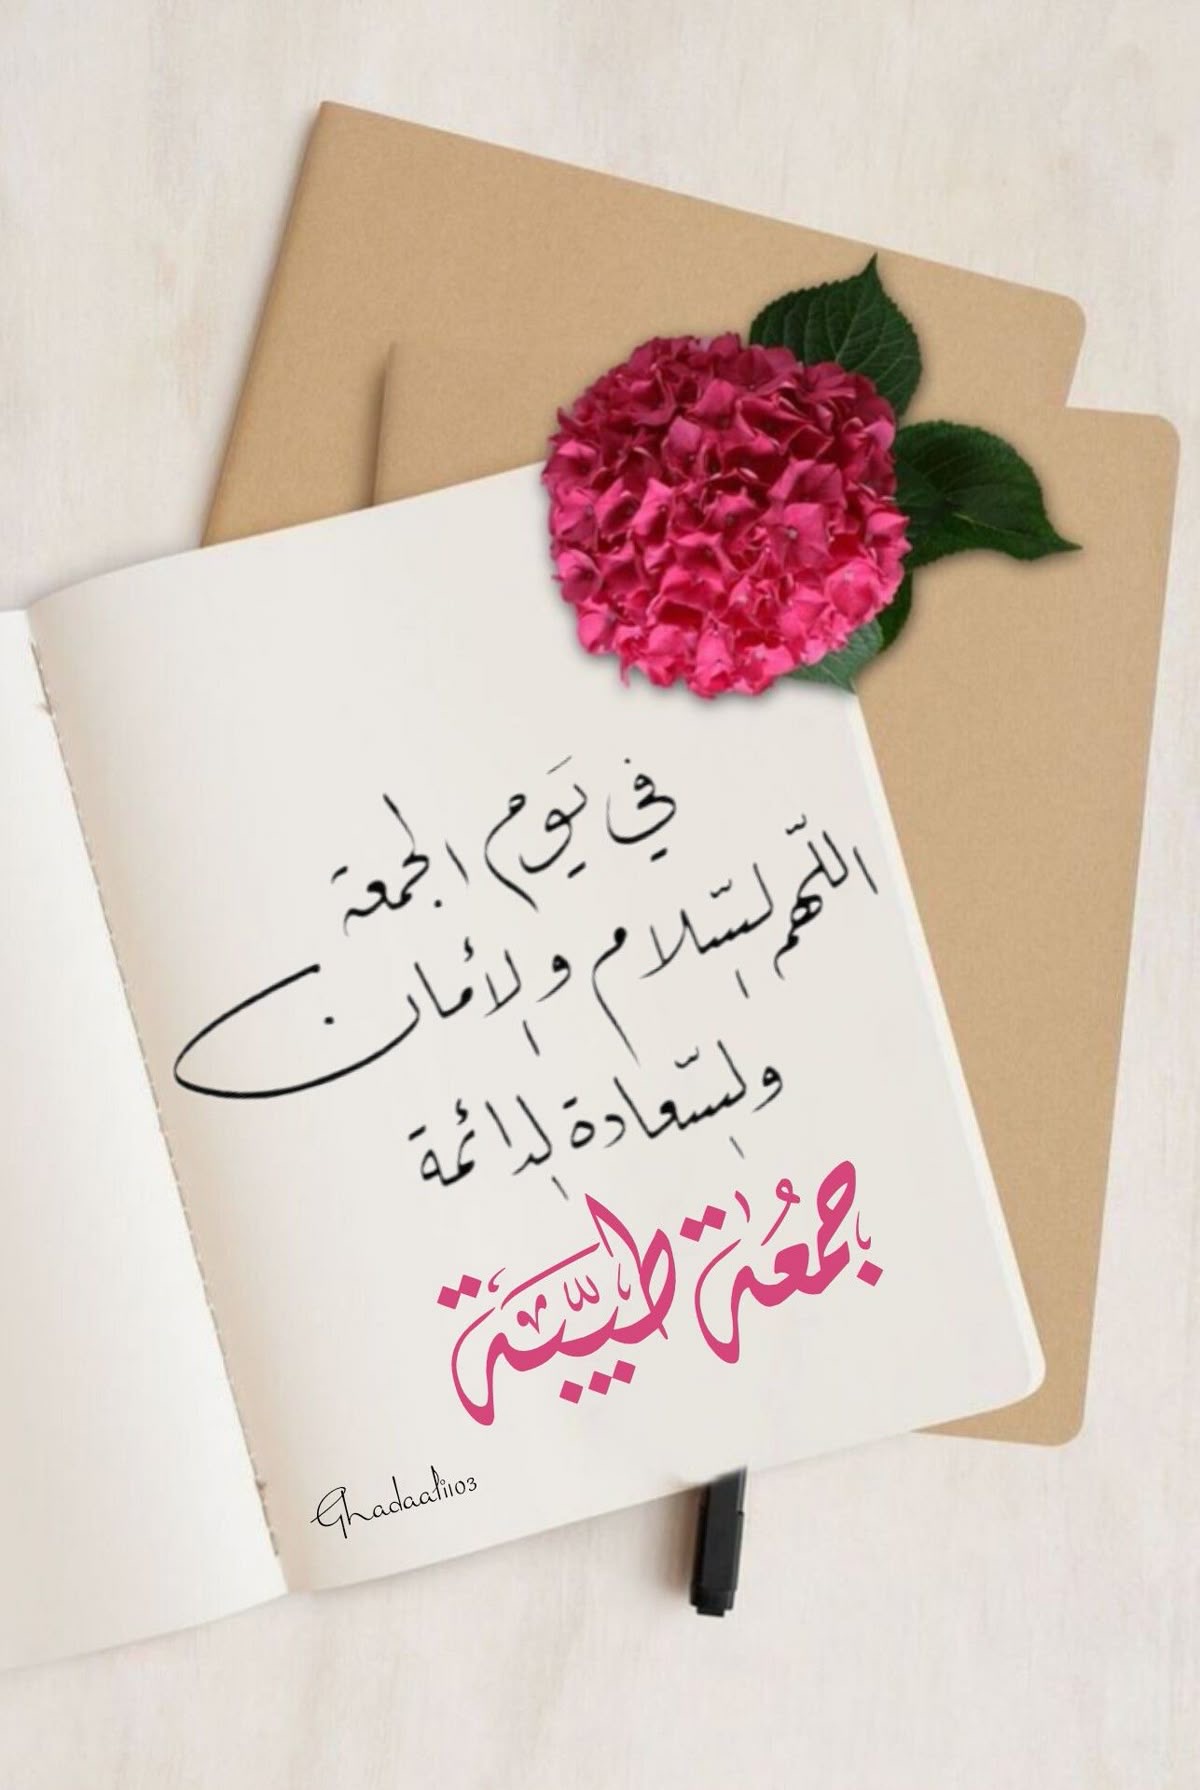 في يَوم الجمعة
اللّهم السّلام والأمان
والسّعادة الدائمة
جمعُة طيّبَة
Ghadaali103